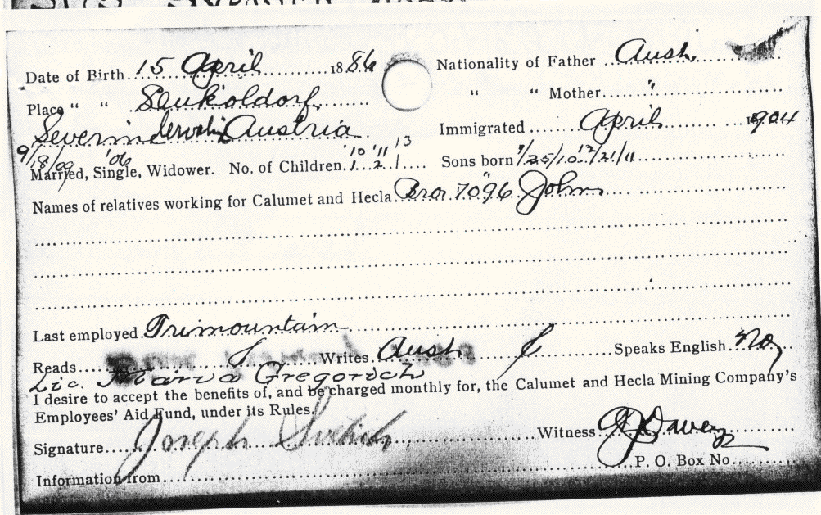 Date of Birth 15 April 1886 Nationality of Father Aust.
Place " " " " Mother "
Austria Immigrated April 1904
9/18/09 '10 '11 13
Married, Single, Widower. No. of Children 1 2 1 Sons born
Names of relatives working for Calumet and Hecla Bro. 7096 John
Last employed Trimountain
Reads Writes Aust Speaks English No
Lic. Maria Gregorich
I desire to accept the benefits of, and be charged monthly for, the Calumet and Hecla Mining Company's
Employees' Aid Fund, under its Rules.
Signature Joseph Witness
Information from P. O. Box No.